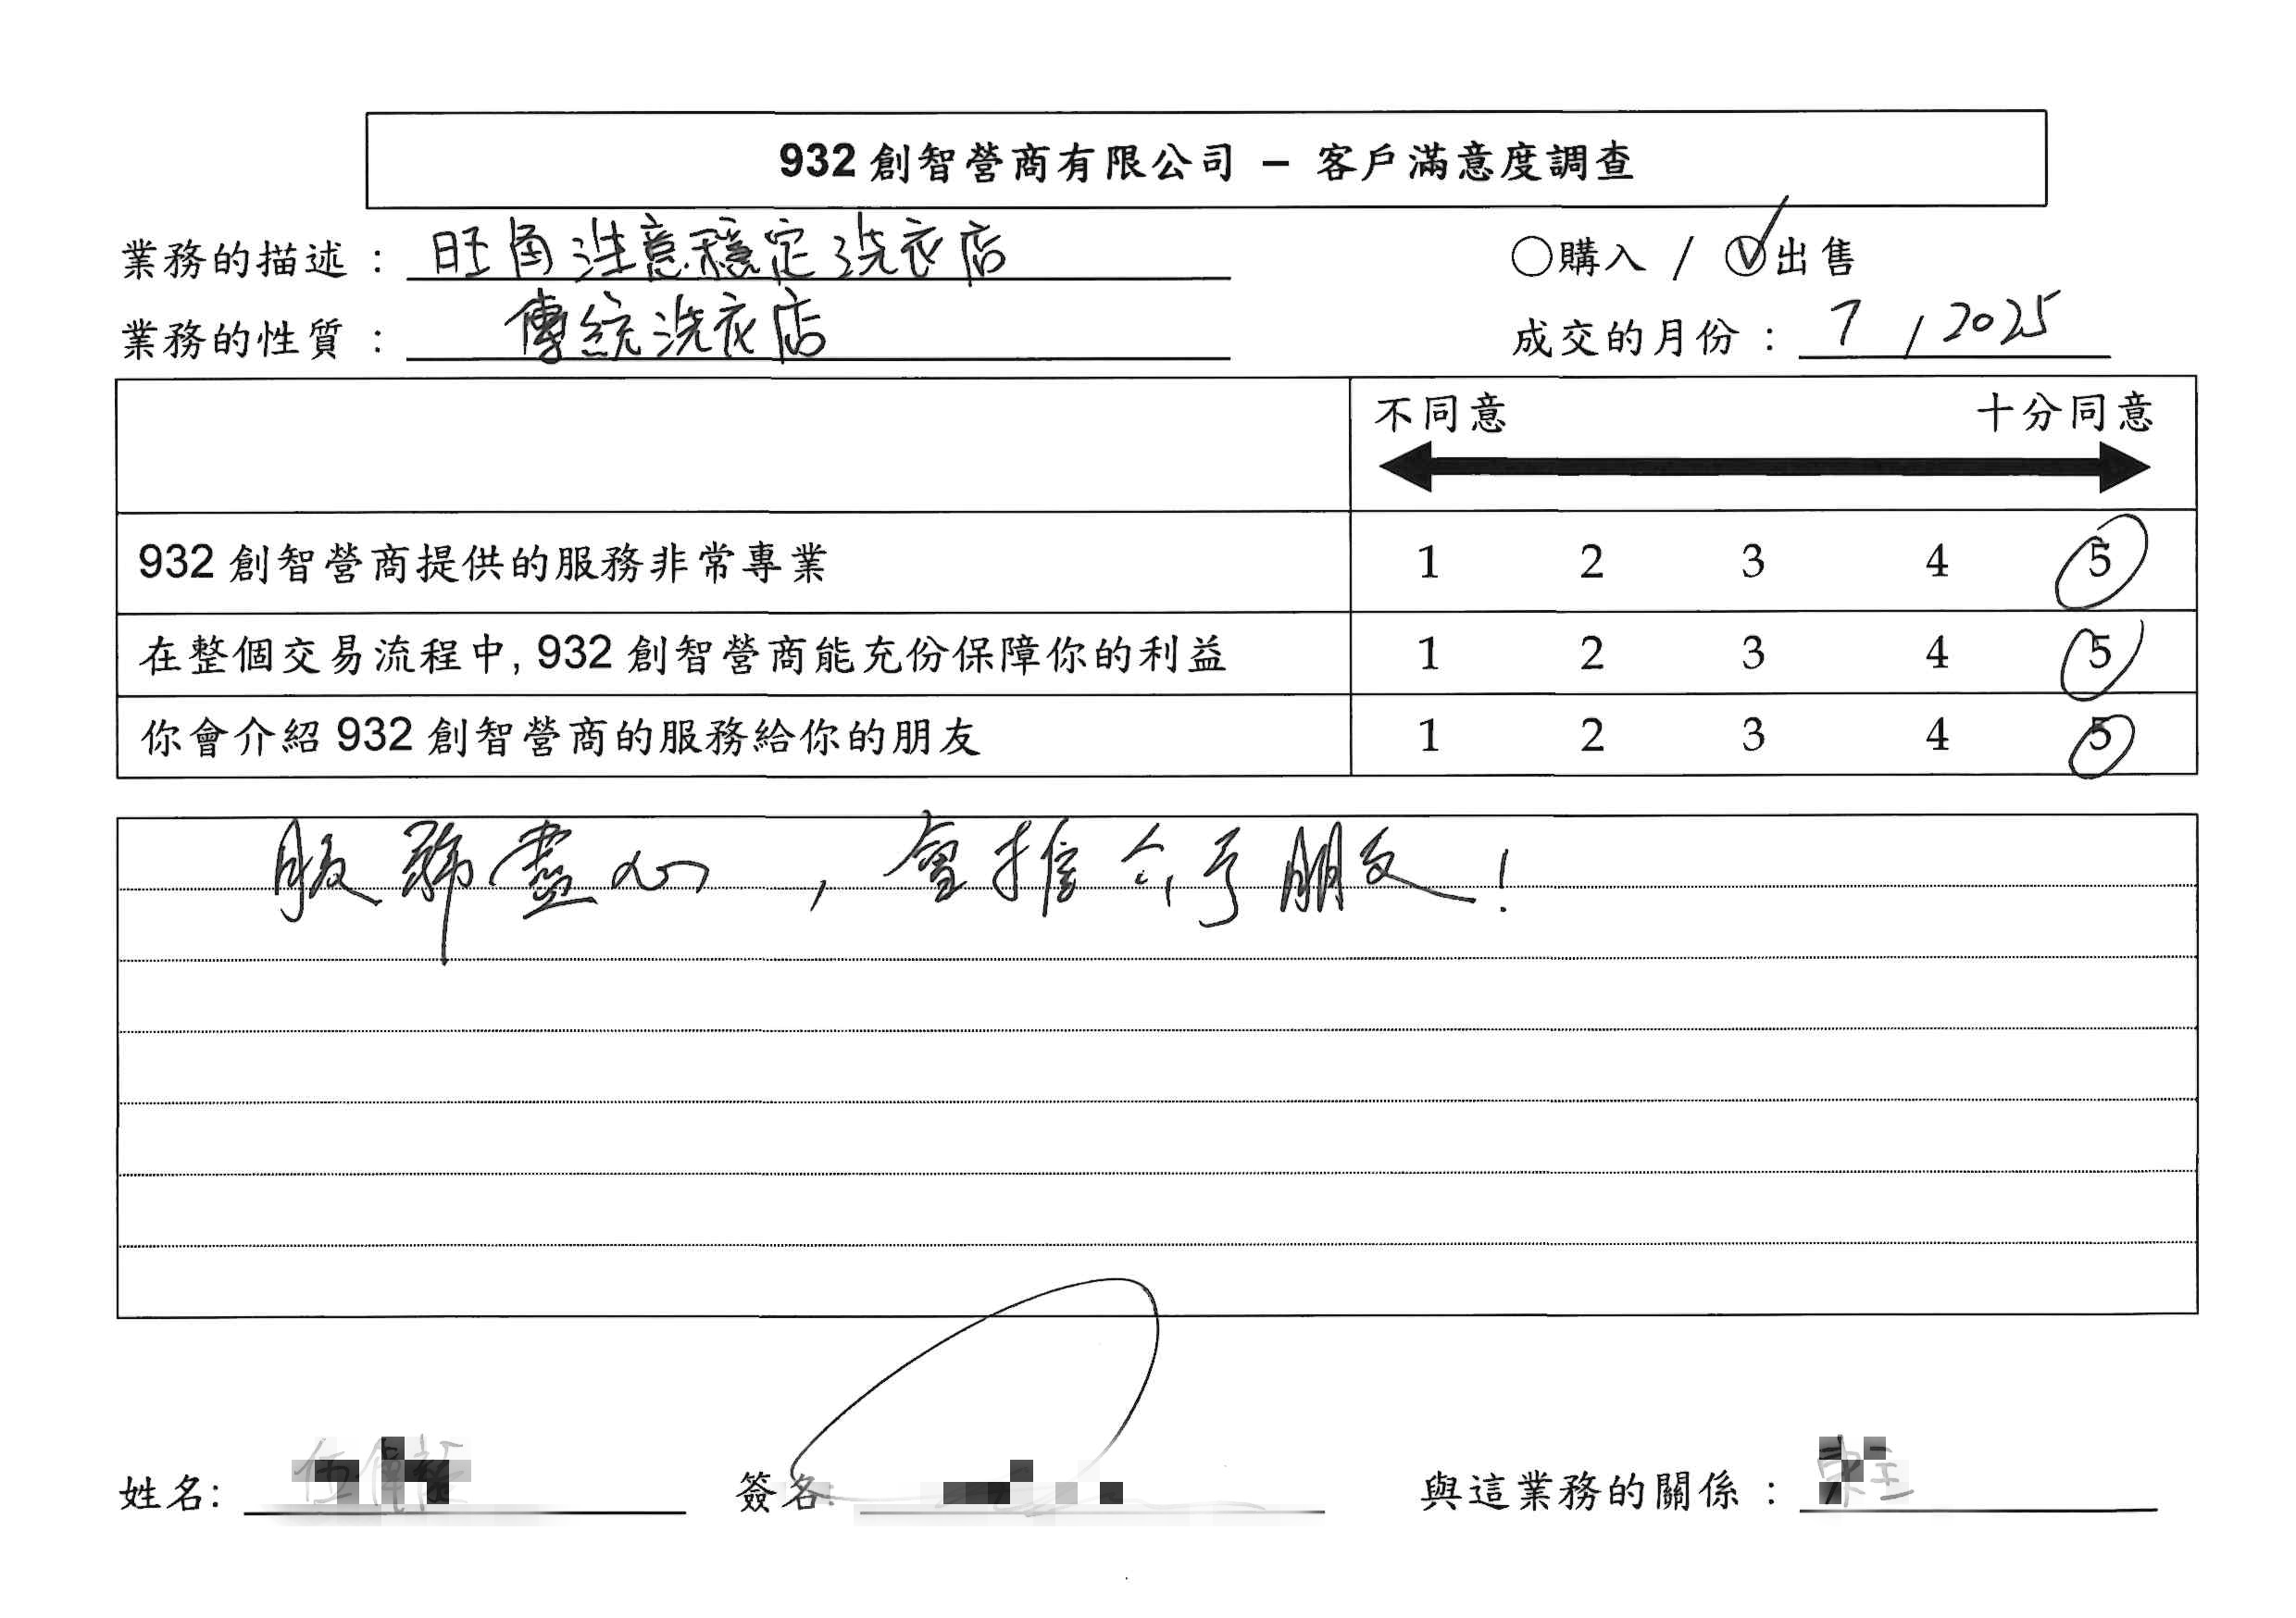 932 創智營商有限公司 – 客戶滿意度調查
業務的描述 : 旺角注意穩定洗衣店 ○購入 / ○出售
業務的性質 : 傳統洗衣店 成交的月份 : 7 / 2025
不同意 十分同意
932 創智營商提供的服務非常專業 1 2 3 4 5
在整個交易流程中, 932 創智營商能充份保障你的利益 1 2 3 4 5
你會介紹 932 創智營商的服務給你的朋友 1 2 3 4 5
服務盡心 , 會推介予朋友!
姓名: 簽名: 與這業務的關係 :